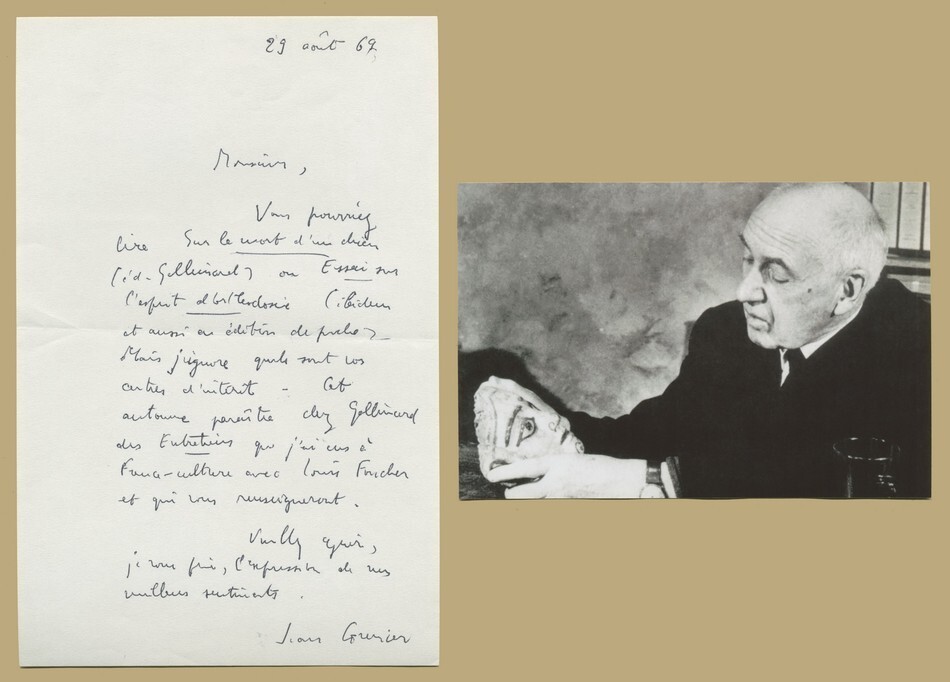 29 août 69
Monsieur,
Vous pourriez
lire Sur la mort d'un chien
(éd. Gallimard) ou Essai sur
l'esprit d'orthodoxie (ibidem
et aussi en édition de poche)
Mais j'ignore quels sont vos
centres d'intérêt - Cet
automne paraîtra chez Gallimard
des Entretiens que j'ai eus à
France-culture avec Louis Foucher
et qui vous renseigneront.
Veuillez agréer,
je vous prie, l'expression de mes
meilleurs sentiments.
Jean Grenier